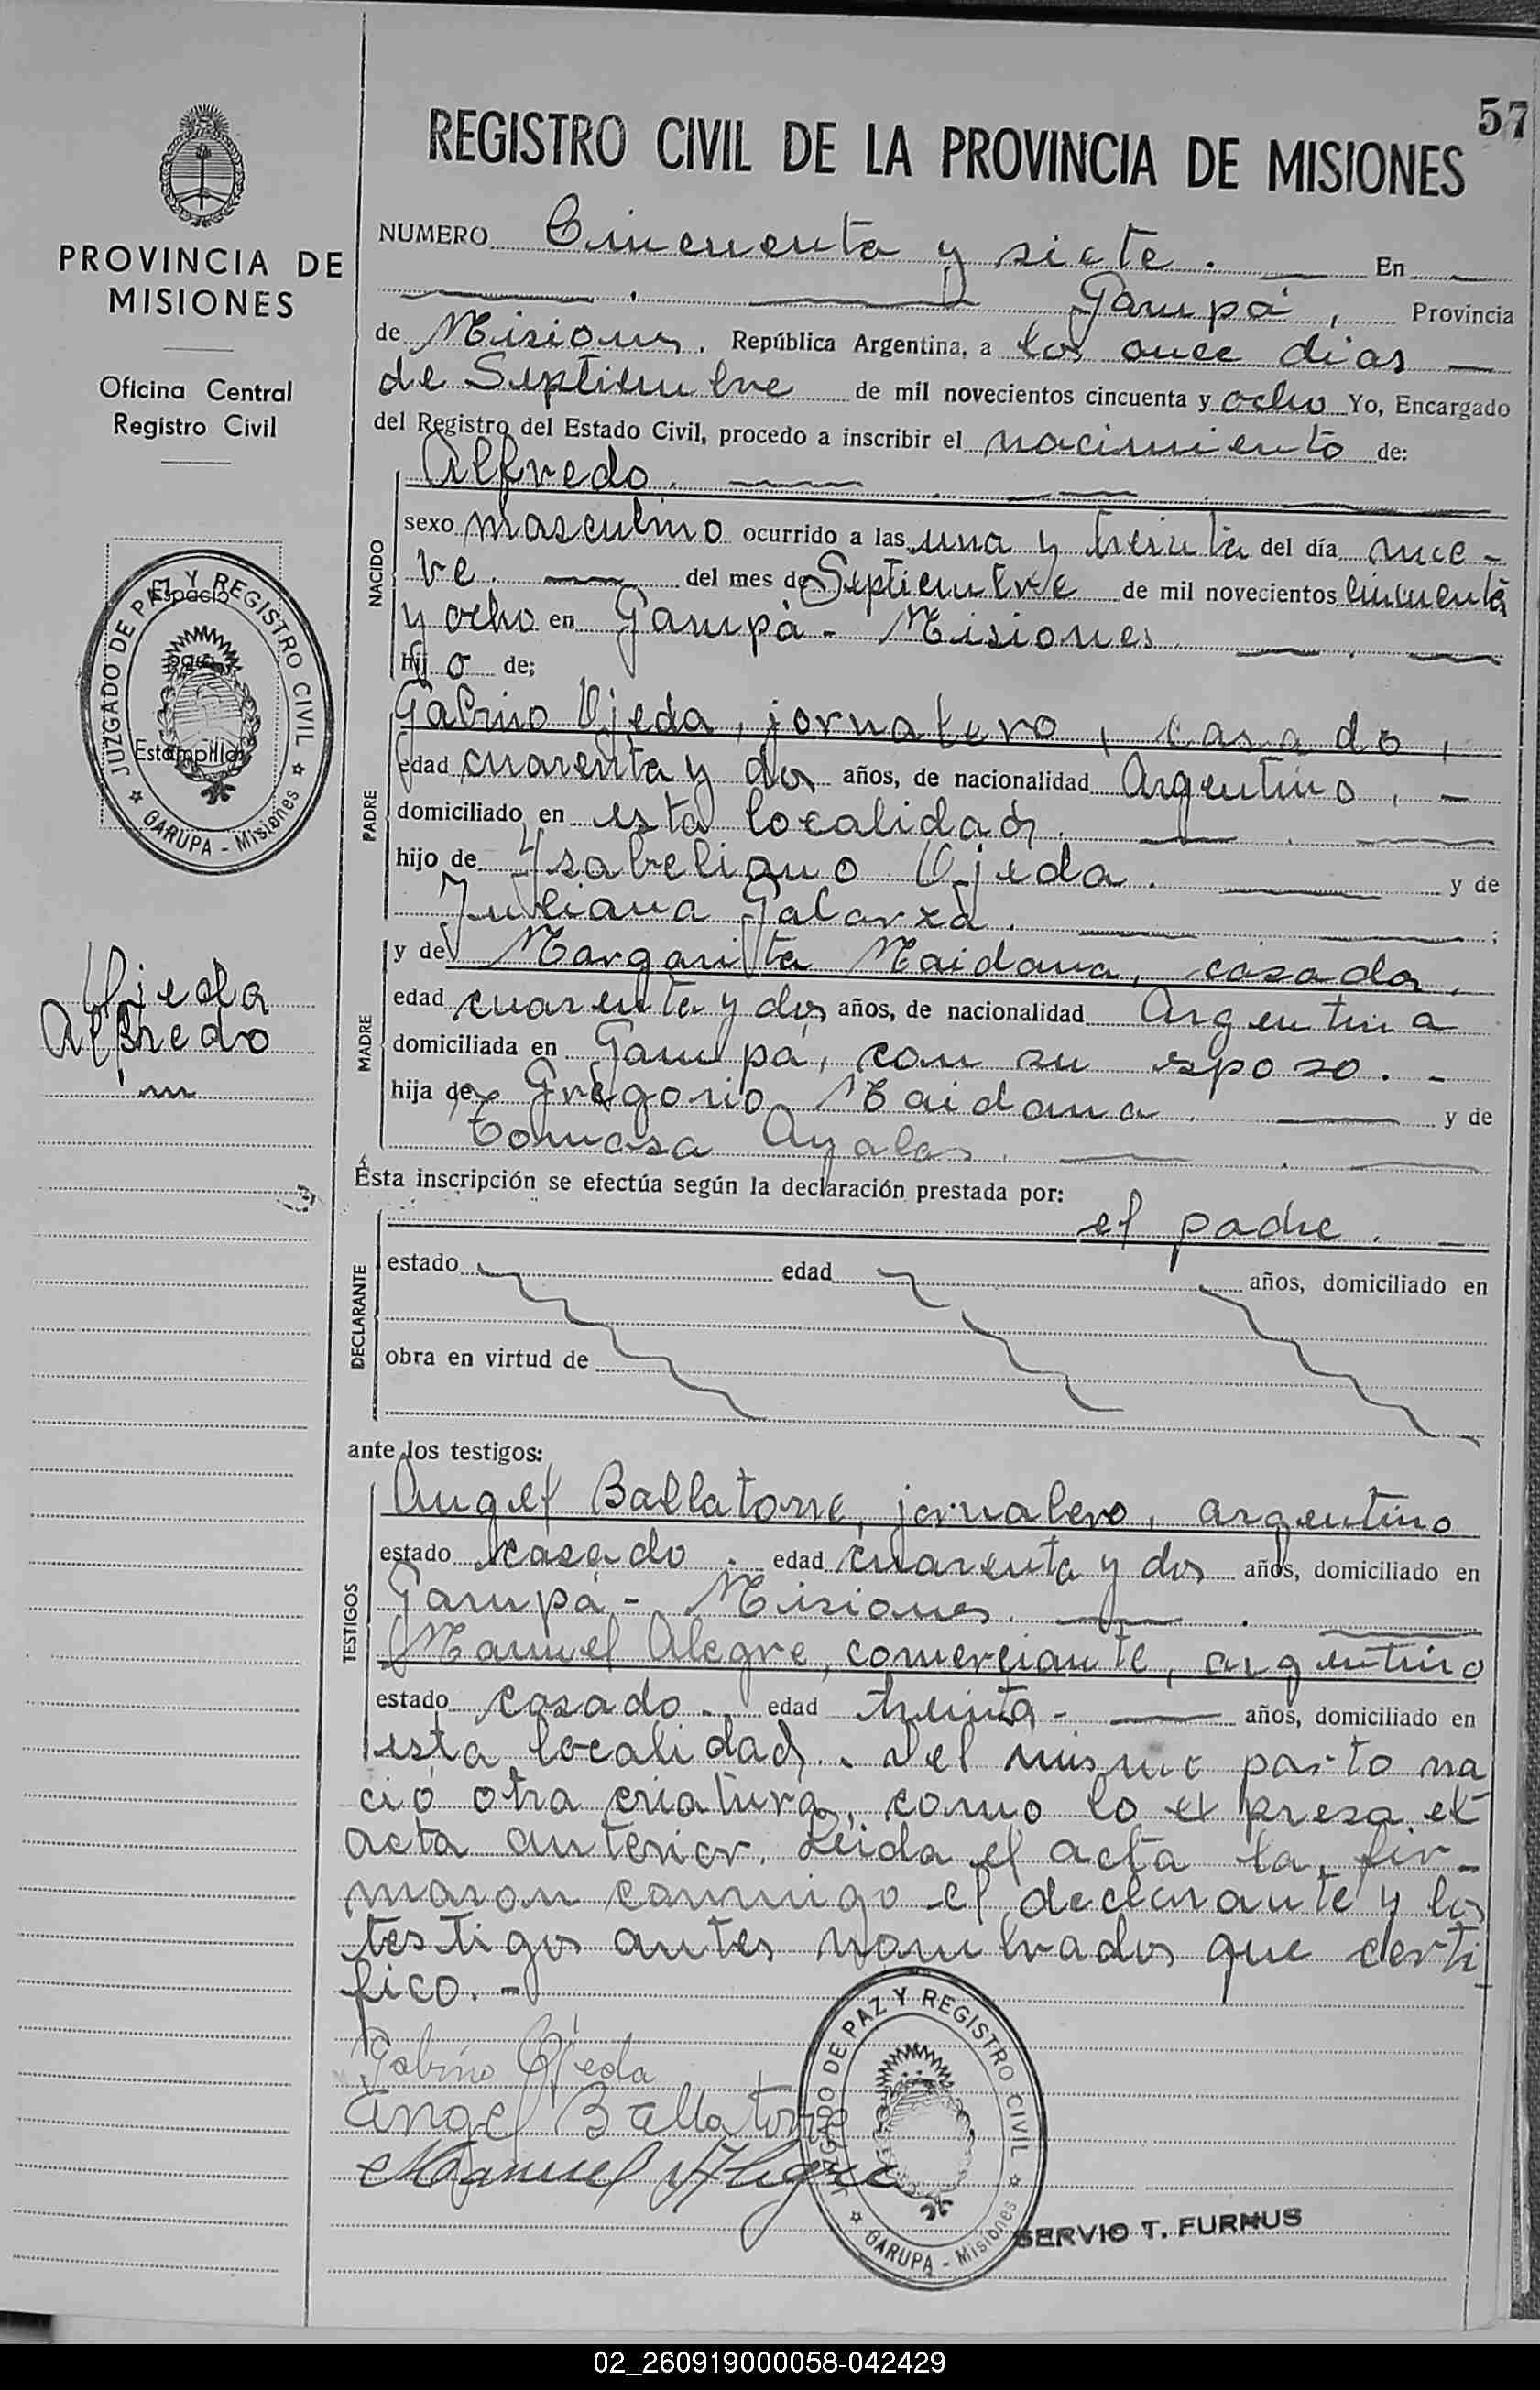 57
REGISTRO CIVIL DE LA PROVINCIA DE MISIONES
PROVINCIA DE
MISIONES
Oficina Central
Registro Civil
JUZGADO DE PAZ Y REGISTRO CIVIL
GARUPA - Misiones
Espacio
para
Estampillar
Ojeda
Alfredo
NUMERO Cincuenta y siete. En
Garupá, Provincia
de Misiones, República Argentina, a los once dias
de Septiembre de mil novecientos cincuenta y ocho Yo, Encargado
del Registro del Estado Civil, procedo a inscribir el nacimiento de:
NACIDO
Alfredo.
sexo masculino ocurrido a las una y treinta del día nue-
ve. del mes de Septiembre de mil novecientos cincuenta
y ocho en Garupá - Misiones
hijo de;
PADRE
Gabino Ojeda, jornalero, casado,
edad cuarenta y dos años, de nacionalidad Argentino, -
domiciliado en esta localidad.
hijo de Ysabeliano Ojeda. y de
Juliana Galarza. ;
MADRE
y de Margarita Maidana, casada,
edad cuarenta y dos años, de nacionalidad Argentina
domiciliada en Garupá, con su esposo. -
hija de Gregorio Maidana y de
Tomasa Ayala.
Esta inscripción se efectúa según la declaración prestada por:
DECLARANTE
el padre. -
estado edad años, domiciliado en
obra en virtud de
ante los testigos:
TESTIGOS
Angel Ballatorre, jornalero, argentino
estado casado. edad cuarenta y dos años, domiciliado en
Garupá - Misiones.
Manuel Alegre, comerciante, argentino
estado casado. edad treinta - años, domiciliado en
esta localidad. Del mismo parto na
ció otra criatura, como lo expresa el
acta anterior. Leida el acta la fir-
maron conmigo el declarante y los
testigos antes nombrados que certi
fico. -
Gabino Ojeda
Angel Ballatorre
Manuel Alegre
JUZGADO DE PAZ Y REGISTRO CIVIL
GARUPA - Misiones
SERVIO T. FURNUS
02_260919000058-042429